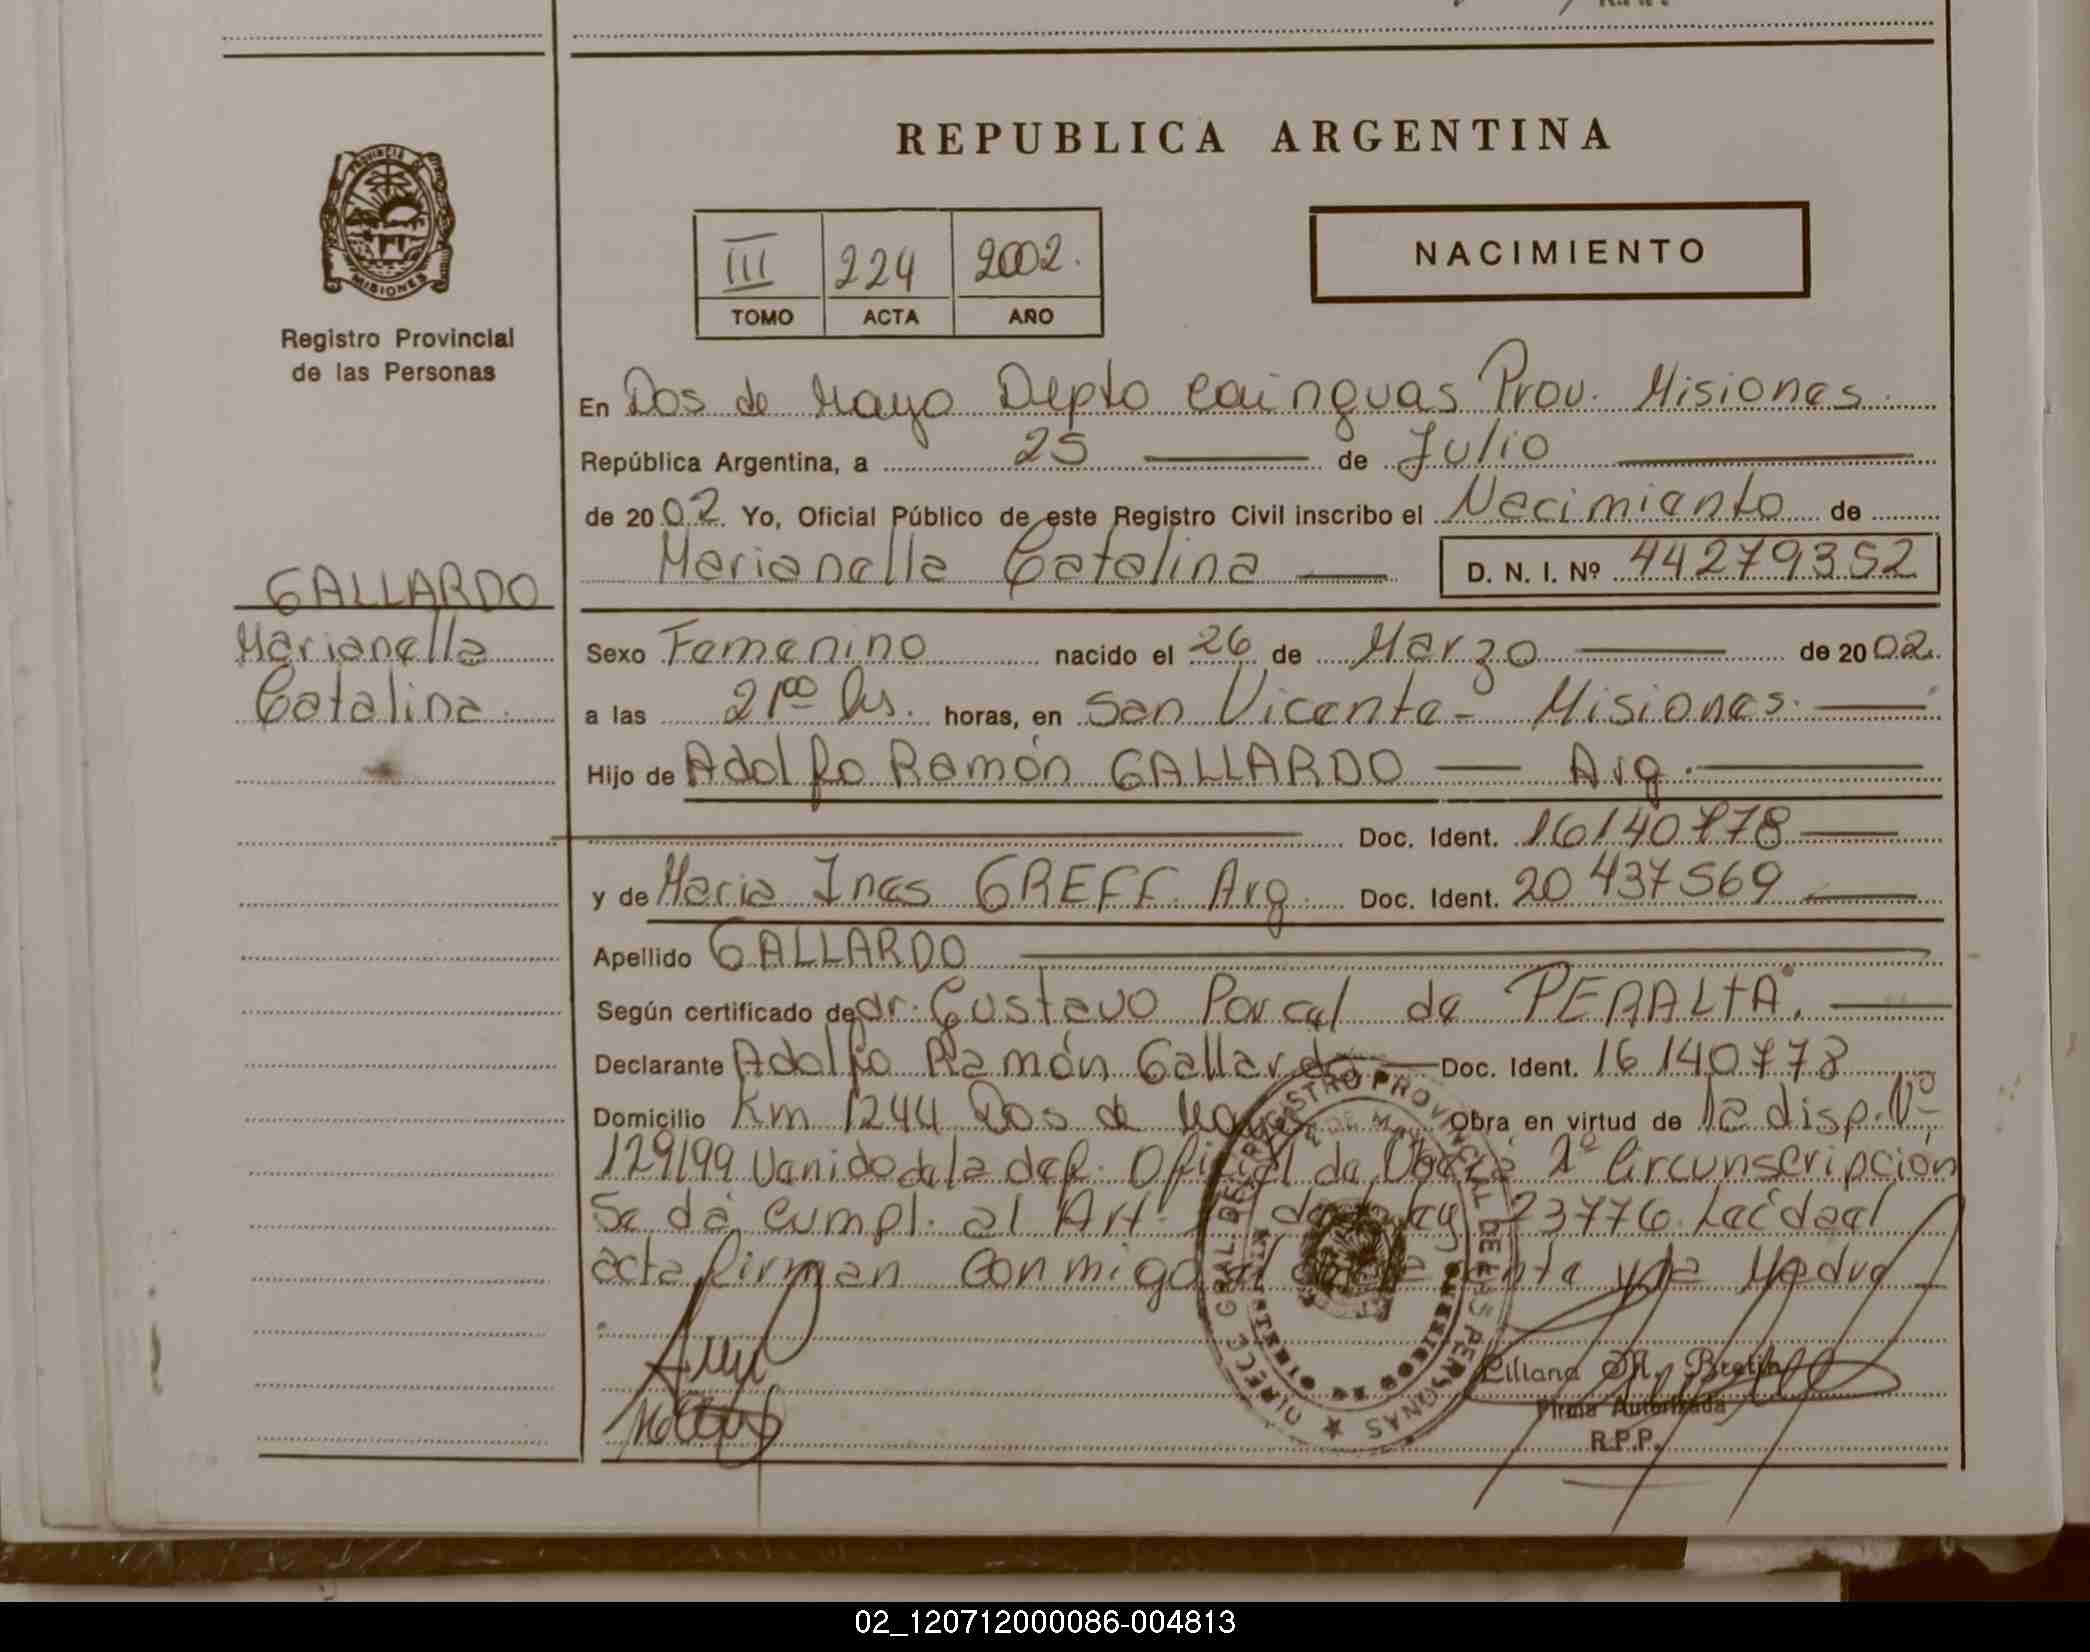 REPUBLICA ARGENTINA
PROVINCIA DE
MISIONES
Registro Provincial
de las Personas
III 224 2002.
TOMO ACTA AÑO
NACIMIENTO
En Dos de Mayo Depto Cainguas Prov. Misiones
República Argentina, a 25 de Julio
de 2002. Yo, Oficial Público de este Registro Civil inscribo el Nacimiento de
Marianella Catalina D. N. I. Nº 44279352
GALLARDO
Marianella
Catalina
Sexo Femenino nacido el 26 de Marzo de 2002.
a las 21⁰⁰ hs. horas, en San Vicente - Misiones.
Hijo de Adolfo Ramón GALLARDO Arg.
Doc. Ident. 16140778
y de Maria Ines GREFF. Arg. Doc. Ident. 20437569
Apellido GALLARDO
Según certificado de dr. Gustavo de PERALTA.
Declarante Adolfo Ramón Gallardo Doc. Ident. 16140778
Domicilio Km 1244 Dos de Mayo Obra en virtud de la disp. Nº
129/99 Venido de la def. Oficial de Oberá 2º Circunscripción
Se dá cumpl. al Art. de la Ley 23776. Leída el
acta firman conmigo el y la Madre
DIRECC. GRAL DEL REGISTRO PROVINCIAL DE LAS PERSONAS
Liliana M. Bretin
Firma Autorizada
R.P.P.
02_120712000086-004813